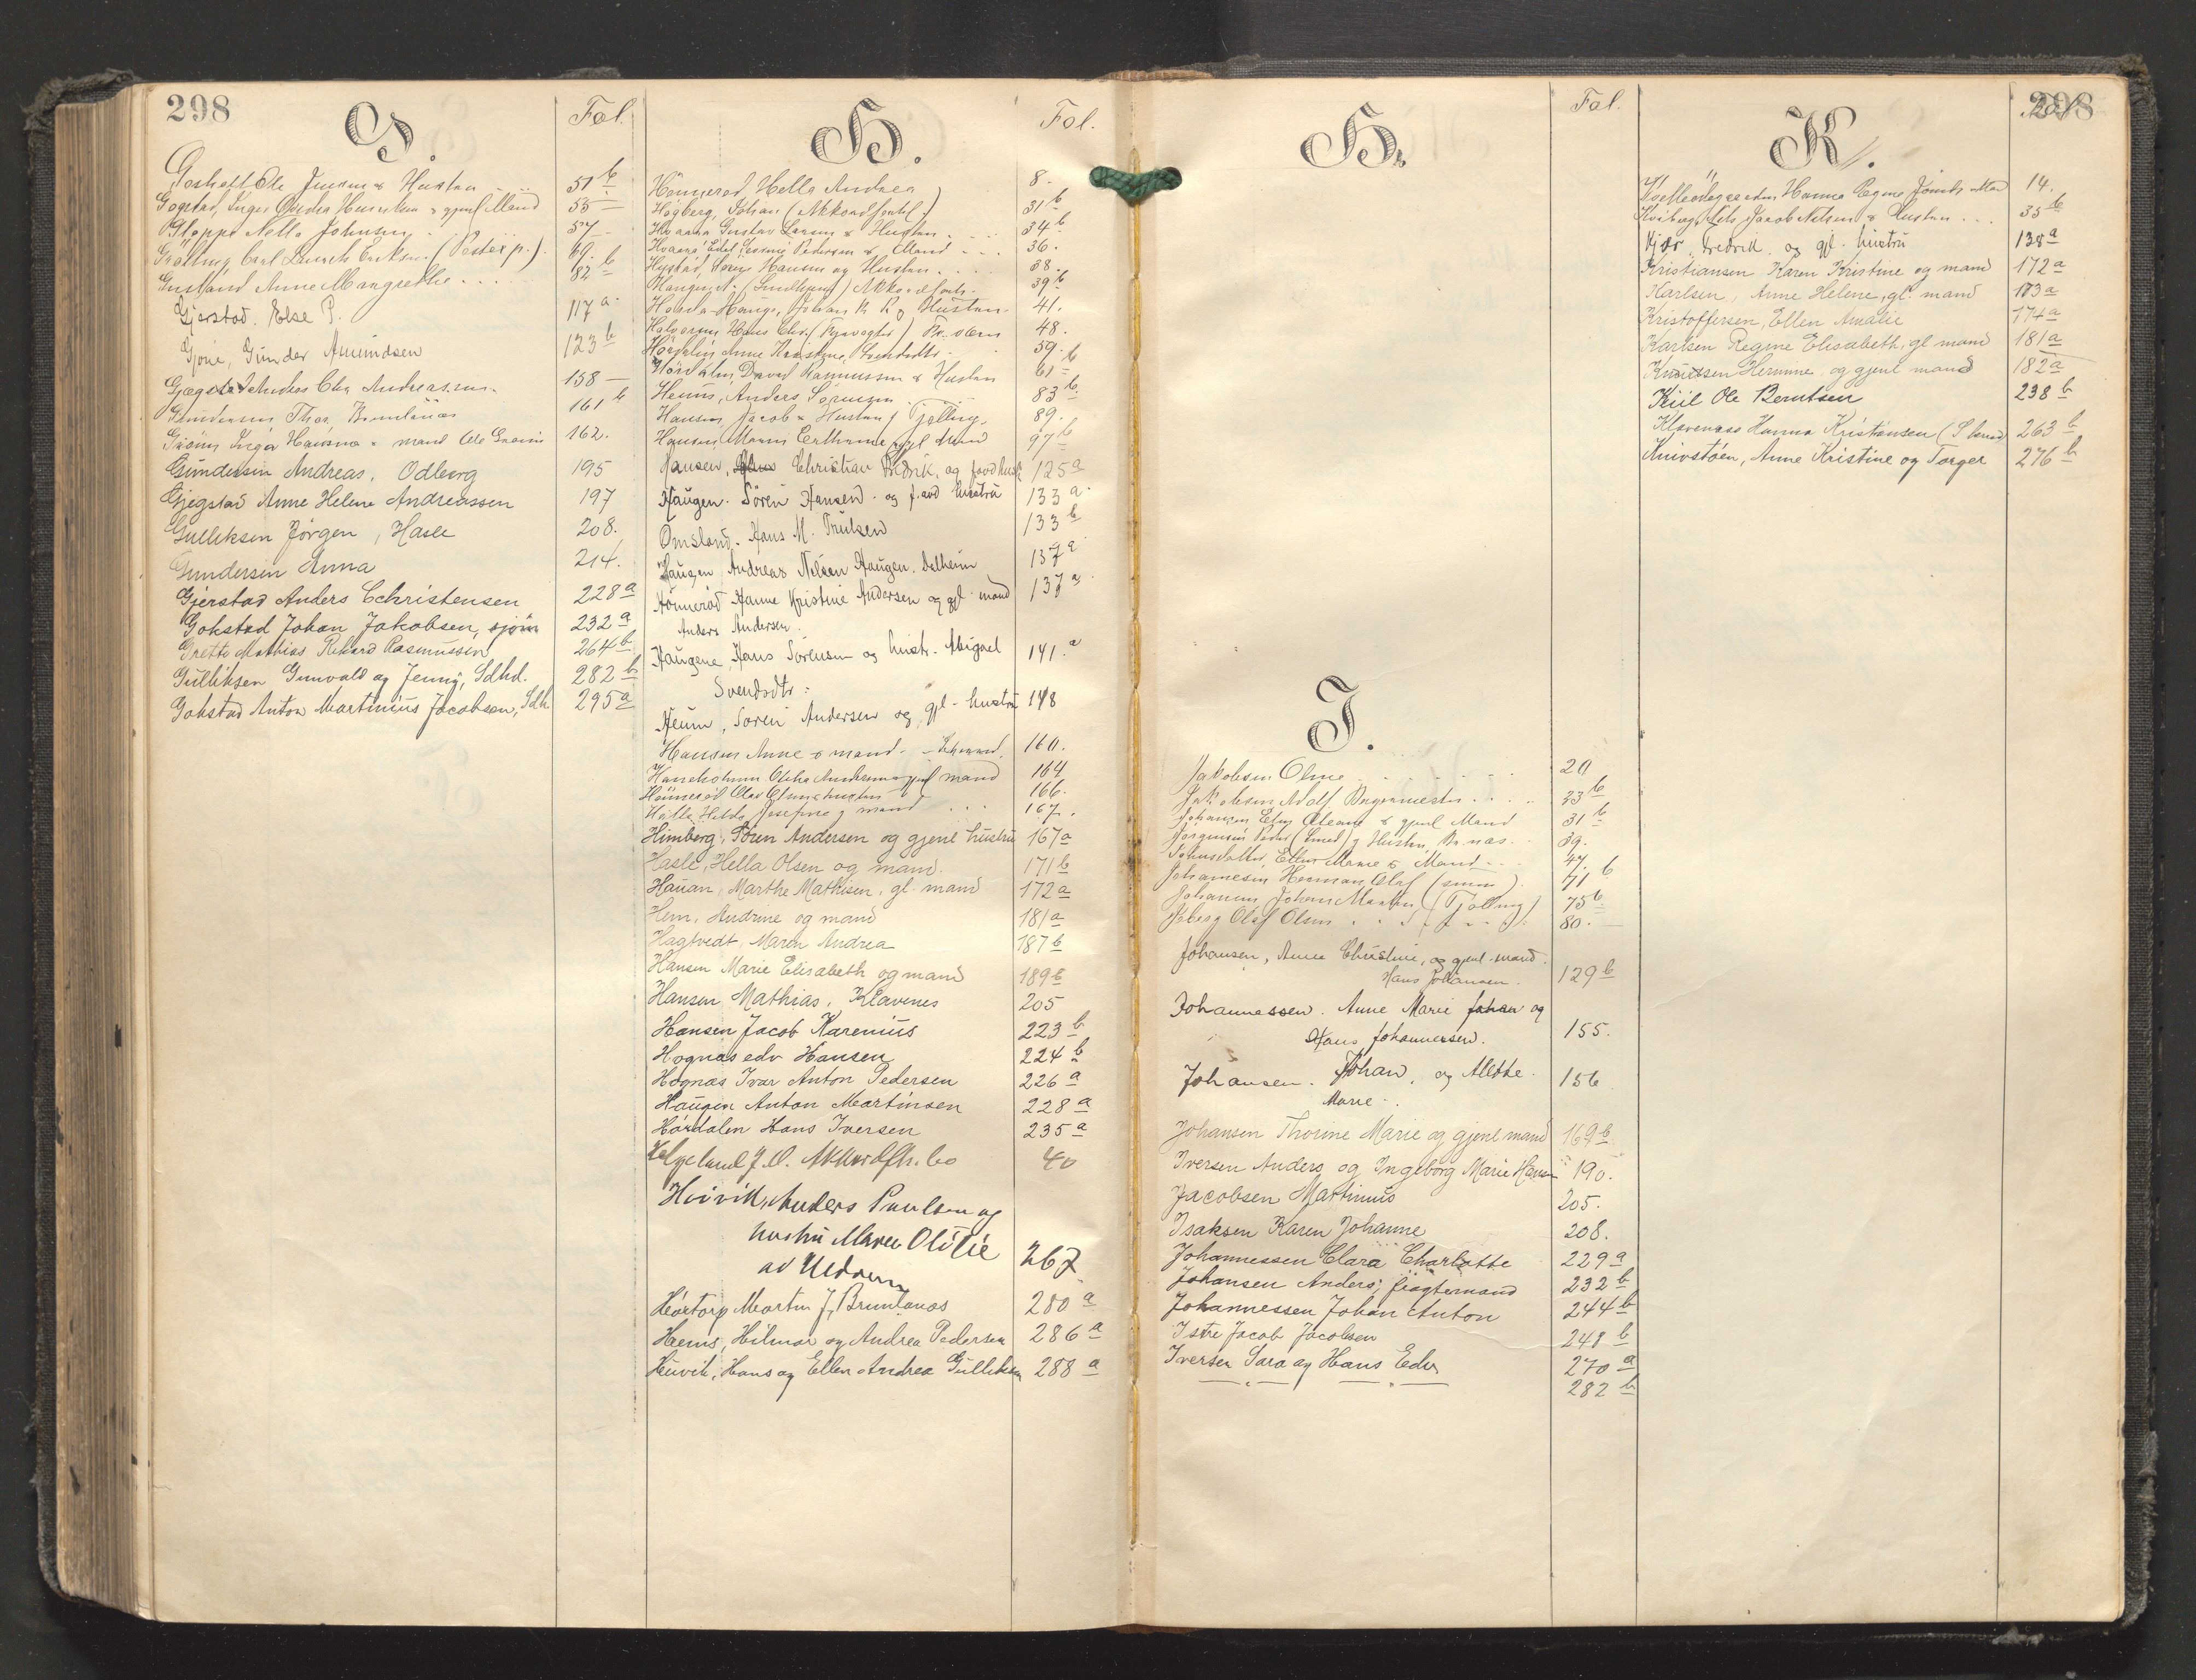 298
G.
Fol.
Ole Jensen & Hustru 51 b
Gogstad, Inger Andrea Henriksen & gjenl. Mand 55
Gloppe Nella Johnsen 57
Carl Laurits Eriksen (Postexp.) 69
Anne Margrethe 82 b
Gjerstad. Else P. 117 a
Gjone, Gunder Amundsen 123 b
Andreas Chr Andreassen 158
Gundersen Thor, Brunlanæs 161 b
Inger Hansine & mand Ole 162.
Gundersen Andreas, Odberg 195
Gjegstad Anne Helene Andreassen 197
Gulliksen Jørgen, Hasle 208.
Gundersen Anna 214.
Gjerstad Anders Cchristensen 228 a
Gokstad Johan Jakobsen, sjøm 232 a
Grette Mathias Rikard Rasmussen 264 b
Gulliksen Gunvald og Jenny, Sdhd. 282 b
Gokstad Anton Martinius Jacobsen, Sdh 295 a
H.
Fol.
Hønnerød Hella Andrea 8.
Høgberg, Johan (Akkordforhl) 31 b
Hvaara Gustav Larsen & Hustru 34 b
Hvaara Edel Pedersen & Mand 36.
Hystad, Søren Hansen og Hustru 38.
Hauger, A. Akkordforh. 39 b
Johan K. og Hustru 41.
Halvorsen Hans Chr. (Fyrvogter) 48.
Hørdalen Anne Kristine Svendsdtr 59.
Hørdalen, David Rasmussen & Hustru 61 b
Heum, Anders Sørensen 83 b
Hansen, Jacob & Hustru, Tjølling. 89.
Hansen Maren Cathrine & gjl Mand 97 b
Hansen, Christian Fredrik, og hustr 125 a
Haugen. Søren Hansen. og f. avd hustru 133 a
Omsland. Hans M. Trulsen 133 b
Haugen Andreas Nilsen Haugen. Solheim 137 a
Hønnerød Hanne Kristine Andersen og gjl. mand 137 a
Anders Andersen.
Haugene, Hans Sørensen og hustr. Abigael 141. a
Svendsdtr:
Heum, Søren Andersen og gjl- hustru 148
Hansen Anne & mand 160.
Haneholmen Andersen gjenl mand 164
Hønnerød Olav Olsen & hustru 166.
Hella Hilda Josefine & mand 167.
Himberg, Søren Andersen og gjenl hustru 167 a
Hasle, Hella Olsen og mand. 171 b
Hauan, Marthe Mathisen, gl. mand 172 a
Hem, Andrine og mand 181 a
Hagtvedt, Maren Andrea 187 b
Hansen Marie Elisabeth og mand 189 b
Hansen Mathias, Klavenes 205
Hansen Jacob Karenius 223 b
Hognæs edv Hansen 224 b
Hognæs Ivar Anton Pedersen 226 a
Haugen Anton Martinsen 228 a
Hørdalen Hans Iversen 235 a
Helgeland J. O. Akkordfh. bo 40
Hvivik, Anders Paulsen og
hustru Maren Otilie
av Hedrum 267
Hertorp Martin J, Brunlanæs 280 a
Heems, Hilmar og Andrea Pedersen 286 a
Huvik, Hans og Ellen Andrea Gulliksen 288 a
H.
Fol.
I.
Jakobsen Oline 20
Jakobsen Adolf 23 b
Johansen Elen Oleane & gjenl Mand 31 b
Jørgensen Peder (Smed) & Hustru, Br. næs 39.
Johnsdatter, Ellen Marie & Mand 47.
Johannesen Herman Olaf 71 b
Johansen Johan Martin (Tjølling) 75 b
Olaf Olsen 80.
Johansen, Anna Christine, og gjenl. mand.
Hans Johansen. 129 b
Johannessen. Anne Marie Johan og
Hans Johannessen. 155.
Johansen. Johan, og Alette 156
Marie.
Johansen Thorine Marie og gjenl mand 169 b
Iversen Anders og Ingeborg Marie Hansen 190.
Jacobsen Martinius 205.
Isaksen Karen Johanne 208.
Johannessen Clara Charlotte 229 a
Johansen Anders, fragtemand 232 b
Johannessen Johan Anton 244 b
Istre Jacob Jacobsen 248 b
Iversen Sara og Hans Edv 270 a
282 b
K.
298
Hanna Regine Jensdt Mand 14.
Kviberg, Jacob Nilsen & Hustru 35 b
Kjær, Fredrik. og gjl. hustru 138 a
Kristiansen Karen Kristine og mand 172 a
Karlsen, Anne Helene, gl. mand 173 a
Kristoffersen, Ellen Amalie 174 a
Karlsen Regine Elisabeth, gl mand 181 a
Knudsen Hermine og gjenl mand 182 a
Kiil Ole Berntsen 238 b
Klavenæs Hanna Kristiansen 263 b
Knivstøen, Anne Kristine og Torger 276 b